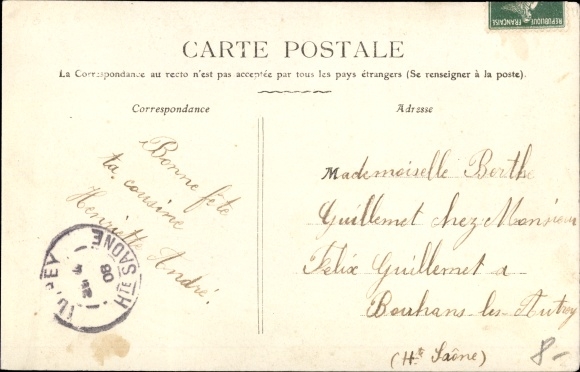 REPUBLIQUE FRANÇAISE
CARTE POSTALE
La Correspondance au recto n'est pas acceptée par tous les pays étrangers (Se renseigner à la poste).
Correspondance
Bonne fête
ta cousine
Henriette André.
Adresse
Mademoiselle Berthe
Guillemet chez Monsieur
Félix Guillemet a
Bouhans les Autrey
(Hte Saône)
HTE SAONE
08
8-